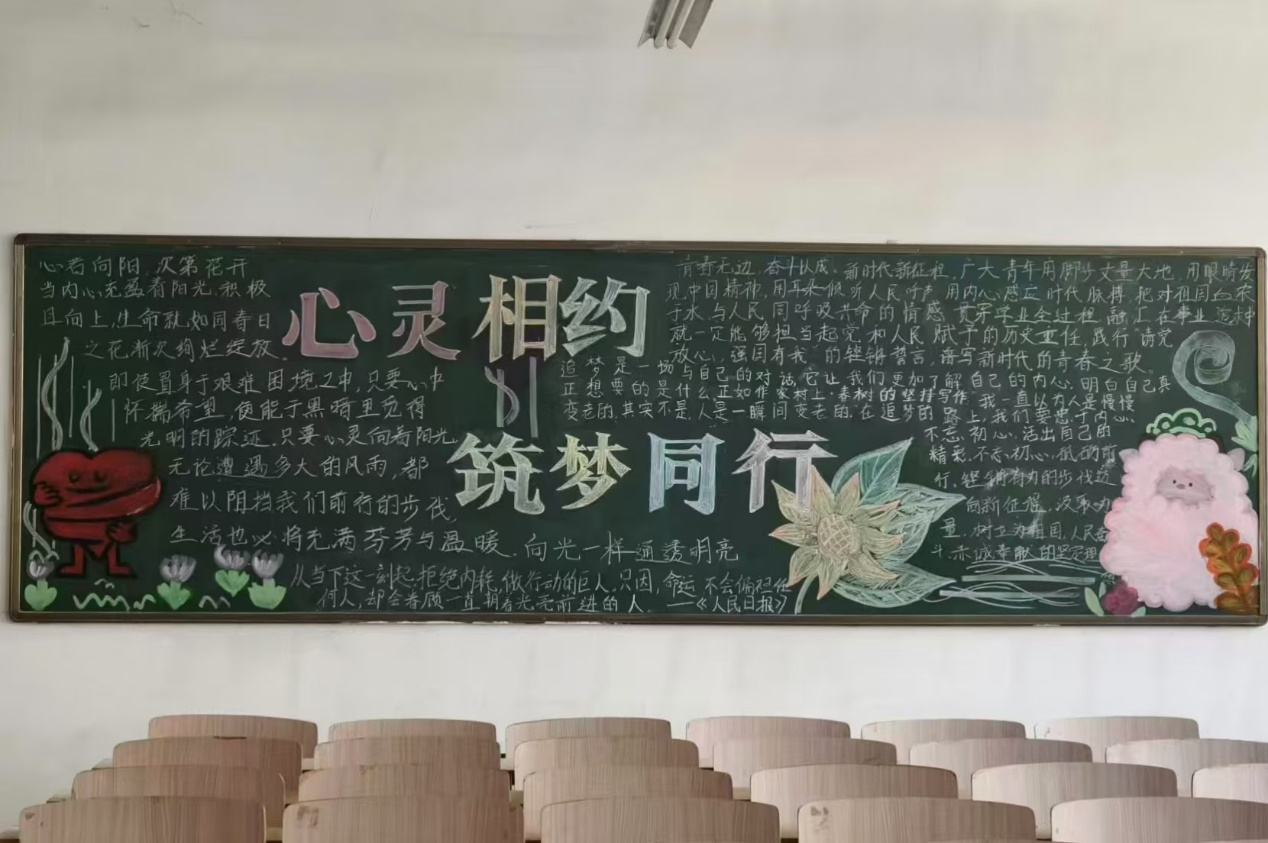 心若向阳,次第花开
当内心充盈着阳光,积极
且向上,生命就如同春日
之花渐次绚烂绽放。
即使置身于艰难困境之中,只要心中
怀揣希望,便能于黑暗里觅得
光明的踪迹,只要心灵向着阳光
无论遭遇多大的风雨,都
难以阻挡我们前行的步伐
生活也必将充满芬芳与温暖,向光一样通透明亮
从当下这一刻起,拒绝内耗,做行动的巨人,只因,命运不会偏袒任
何人,却会眷顾一直朝着光亮前进的人。——《人民日报》
心灵相约
筑梦同行
青春无边,奋斗以成。新时代新征程,广大青年用脚步丈量大地,用眼睛发
现中国精神,用耳朵倾听人民呼声,用内心感应时代脉搏,把对祖国血浓
于水、与人民同呼吸共命的情感,贯穿学业全过程,融汇在事业追求中
就一定能够担当起党和人民赋予的历史重任,践行“请党
放心,强国有我”的铿锵誓言,谱写新时代的青春之歌。
追梦是一场与自己的对话,它让我们更加了解自己的内心,明白自己真
正想要的是什么,正如作家村上·春树的坚持写作,我一直以为人是慢慢
变老的,其实不是,人是一瞬间变老的,在追梦的路上,我们要忠于内心,
不忘初心,活出自己的
精彩,不忘初心,砥砺前
行,铿锵有力的步伐迈
向新征程,汲取力
量,树立为祖国,人民奋
斗,赤诚奉献的坚定理